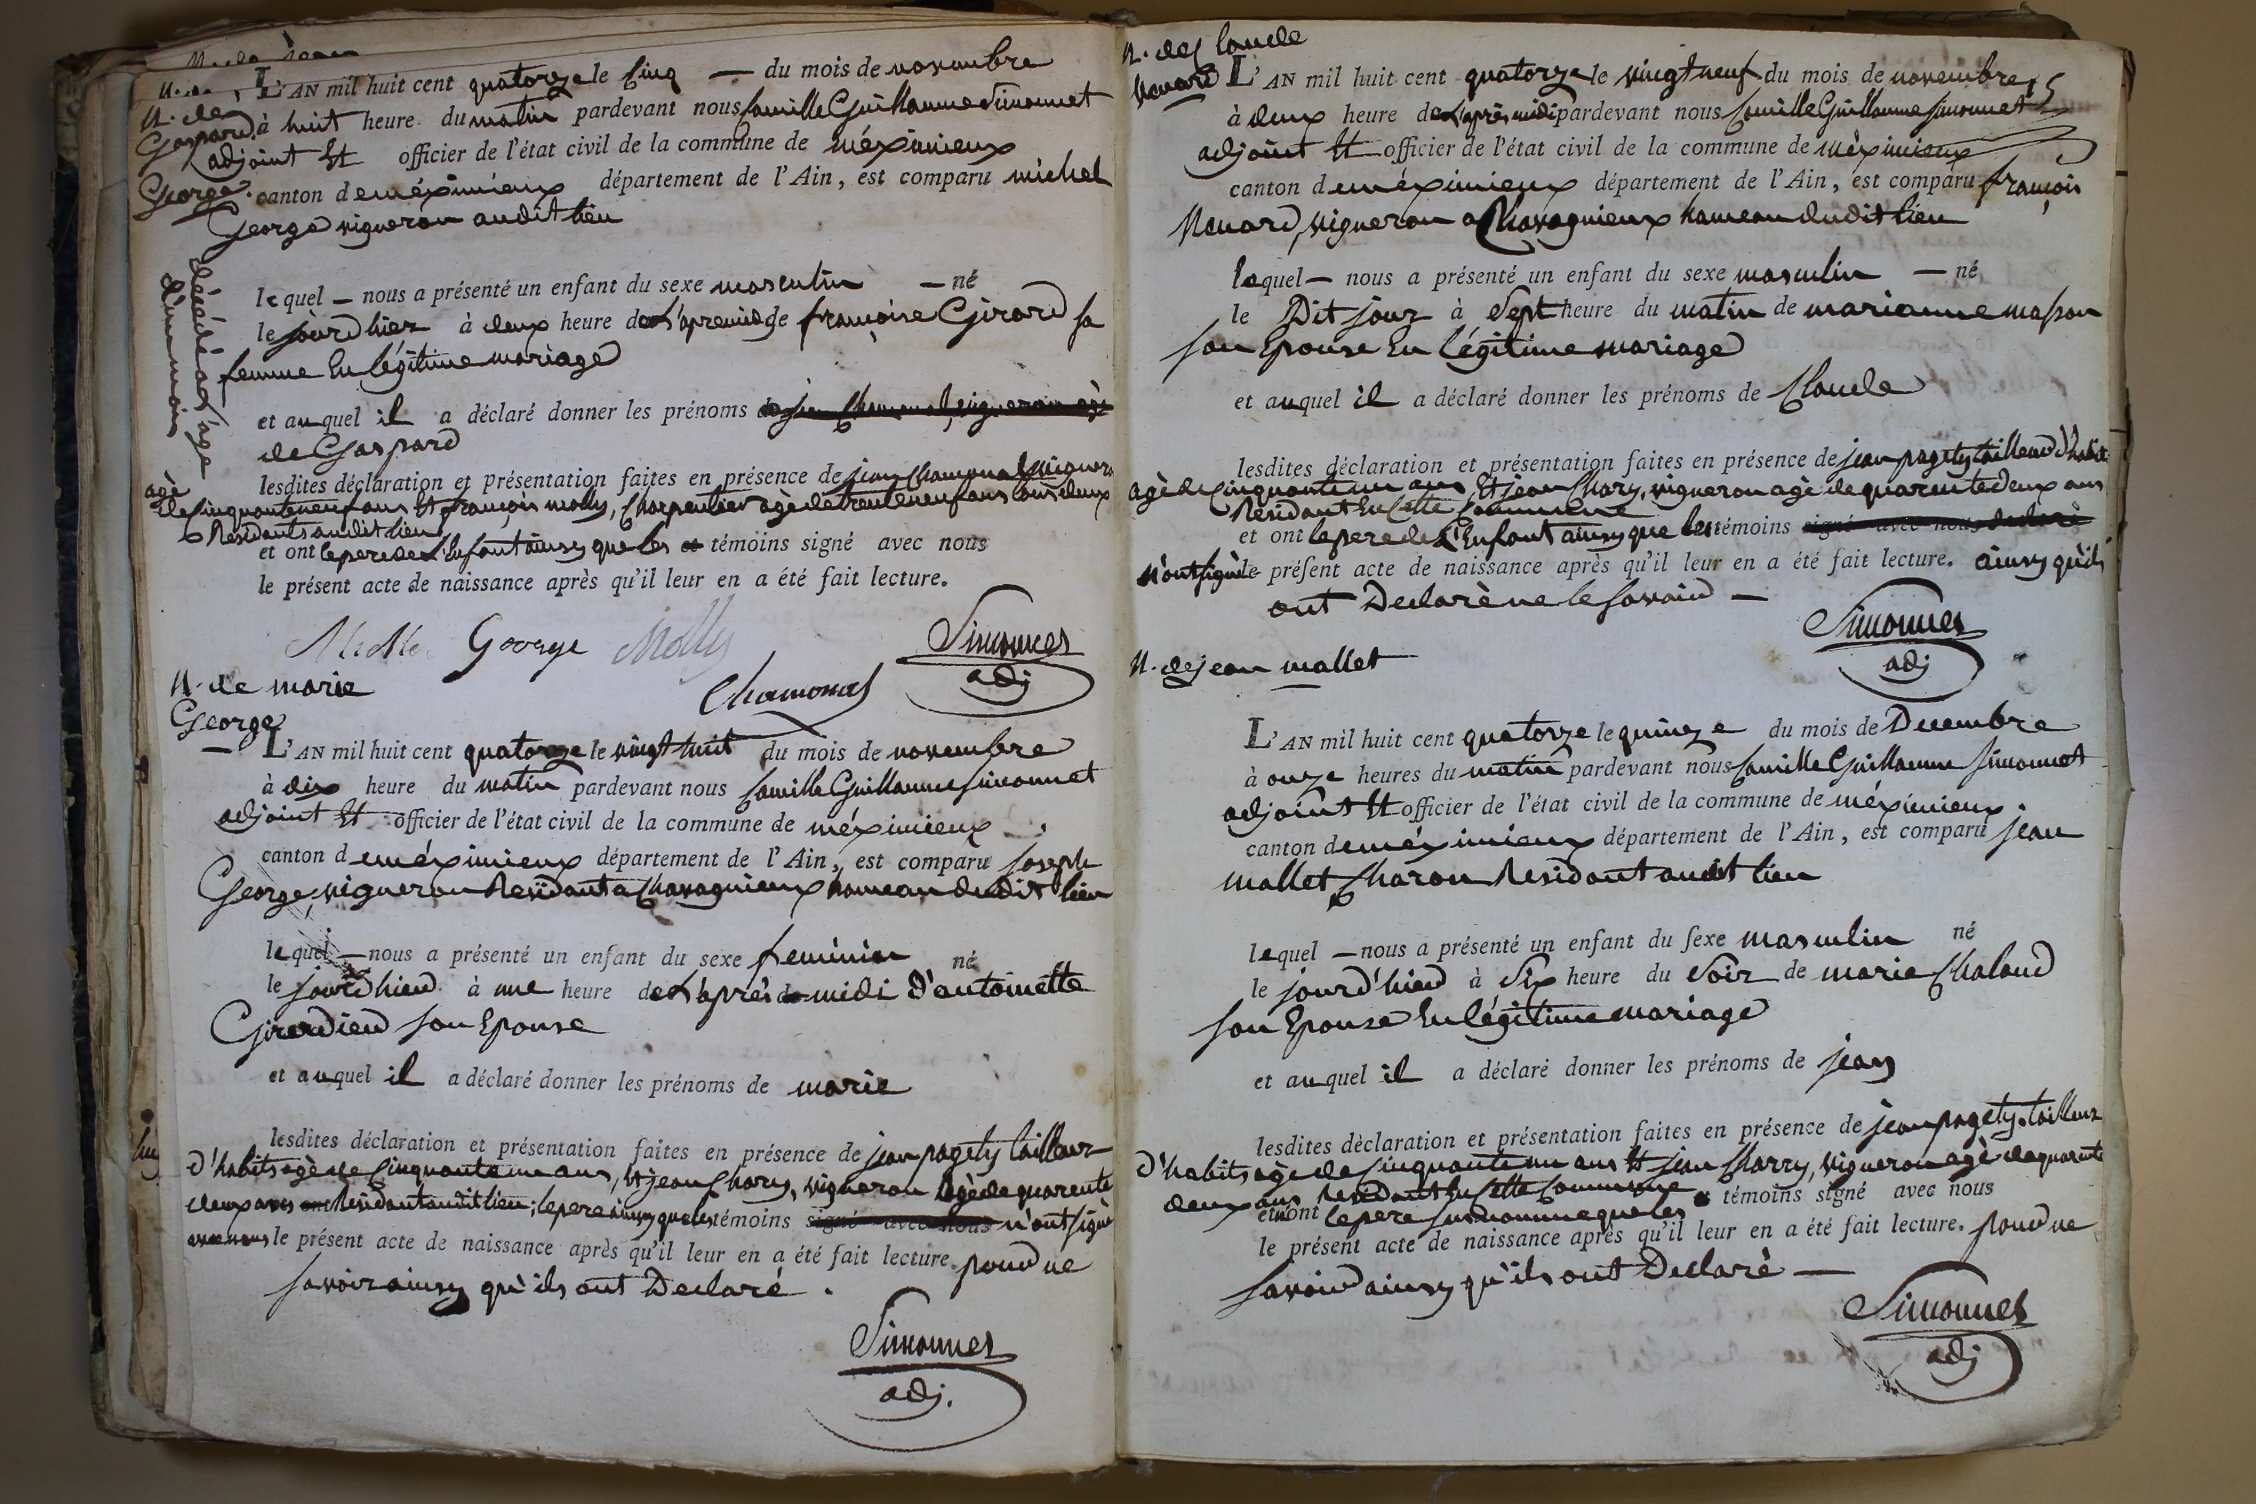 N. de
Gaspard
George
L'AN mil huit cent quatorze le Cinq — du mois de novembre
à huit heure du matin pardevant nous Camille Guillaume Simonnet
adjoint Et officier de l'état civil de la commune de méximieux
canton de méximieux département de l'Ain, est comparu michel
George vigneron audit lieu
décédé adj l'age
d'un mois
lequel — nous a présenté un enfant du sexe masculin — né
le jourd'hier à deux heure de l'apremidy de françoise Girard sa
femme En légitime mariage
et auquel il a déclaré donner les prénoms de jean Chamonal, vigneron agè
de Gaspard
lesdites déclaration et présentation faites en présence de jean Chamonal vigneron
agè
de Cinquanteneuf ans Et françois molly, Charpentier agè de trenteneuf ans tous deux
Residants audit lieu
et ont le pere de l'Enfant ainsy que les témoins signé avec nous
le présent acte de naissance après qu'il leur en a été fait lecture.
George Molly Simonnet
adj
Chamonal
N. de marie
George
L'AN mil huit cent quatorze le vingt huit du mois de novembre
à dix heure du matin pardevant nous Camille Guillaume Simonnet
adjoint Et officier de l'état civil de la commune de méximieux
canton de méximieux département de l'Ain, est comparu Joseph
George, vigneron Residant a Chavagnieux hameau dudit lieu
lequel — nous a présenté un enfant du sexe feminin né
le jourd'hier à une heure de l'après midi d'antoinette
Girerdier son Epouse
et auquel il a déclaré donner les prénoms de marie
lesdites déclaration et présentation faites en présence de jean pagety tailleur
d'habits agè de Cinquante un ans, Et jean Chary, vigneron agè de quarente
deux ans Residant audit lieu; le pere ainsy que les témoins signé avec nous n'ont signè
avec nous le présent acte de naissance après qu'il leur en a été fait lecture. pour ne
savoir ainsy qu'ils ont Declaré.
Simonnet
adj.
N. de Claude
Monard
15
L'AN mil huit cent quatorze le vingt neuf du mois de novembre
à deux heure de l'après midi pardevant nous Camille Guillaume Simonnet
adjoint Et officier de l'état civil de la commune de méximieux
canton de méximieux département de l'Ain, est comparu françois
Monard, vigneron a Chavagnieux hameau dudit lieu
lequel — nous a présenté un enfant du sexe masculin — né
le Dit jour à Sept heure du matin de marianne masson
son Epouse En légitime mariage
et auquel il a déclaré donner les prénoms de Claude
lesdites déclaration et présentation faites en présence de jean pagety tailleur d'habit
agè de Cinquante un ans, Et jean Chary, vigneron agè de quarente deux ans
Residant En Cette Commune
et ont le pere de l'Enfant ainsy que les témoins signé avec nous declaré
n'ont signè le présent acte de naissance après qu'il leur en a été fait lecture. ainsy qu'ils
ont Declarè ne le savoir —
Simonnet
adj
N. de jean mallet
L'AN mil huit cent quatorze le quinze du mois de Decembre
à onze heures du matin pardevant nous Camille Guillaume Simonnet
adjoint Et officier de l'état civil de la commune de méximieux.
canton de méximieux département de l'Ain, est comparu jean
mallet, Charon Residant audit lieu
lequel — nous a présenté un enfant du sexe masculin né
le jourd'hier à Six heure du Soir de marie Chaland
son Epouse En légitime mariage
et auquel il a déclaré donner les prénoms de jean
lesdites dèclaration et présentation faites en présence de jean pagety, tailleur
d'habits agè de Cinquante un ans Et jean Charry, vigneron agè de quarente
deux ans Residant En Cette Commune
et n'ont le pere susnommè que les témoins signé avec nous
le présent acte de naissance après qu'il leur en a été fait lecture. pour ne
savoir ainsy qu'ils ont Declarè —
Simonnet
adj